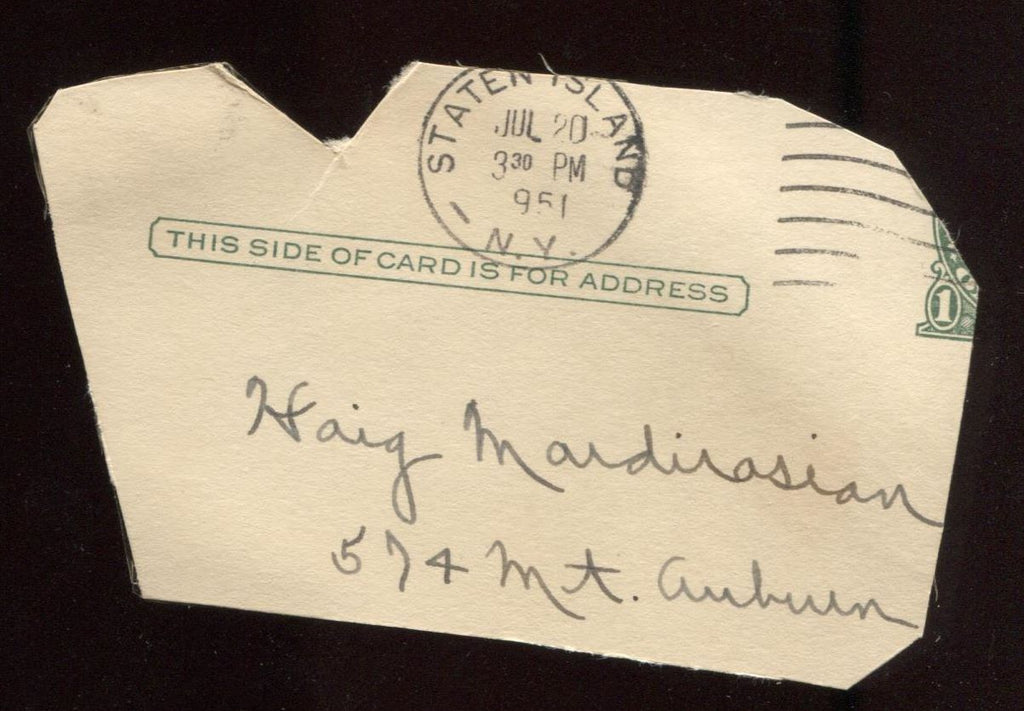 STATEN ISLAND
JUL 20
3 30 PM
1951
N.Y.
THIS SIDE OF CARD IS FOR ADDRESS
1
Haig Mardirosian
574 Mt. Auburn